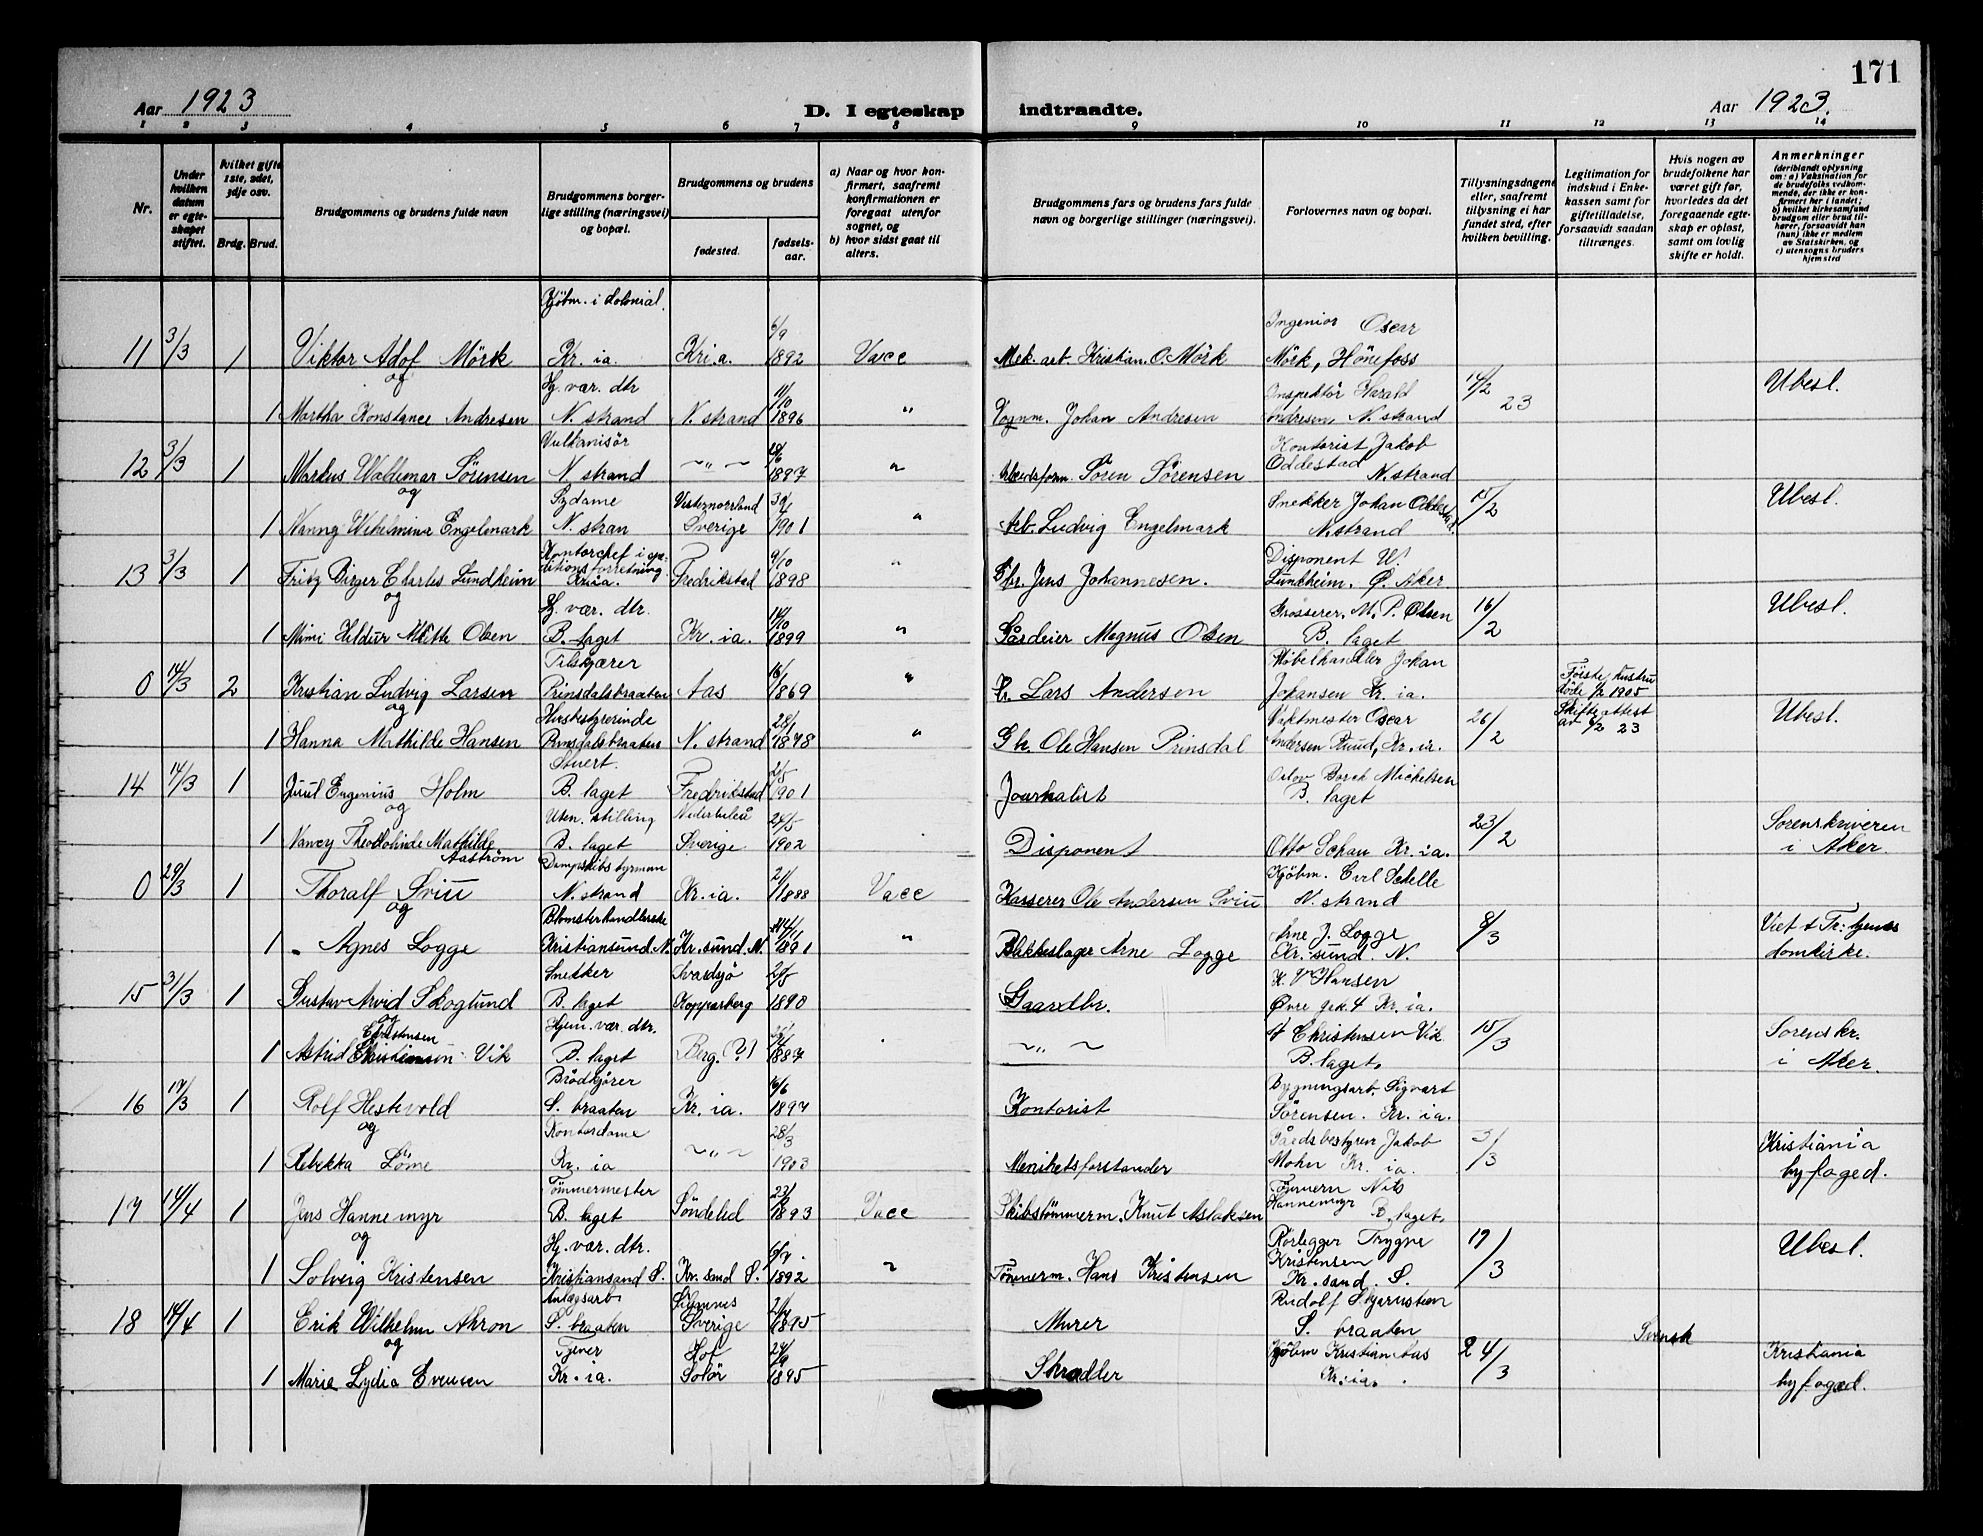 171
Aar 1923
D. I egteskap indtraadte.
Aar 1923.
1 2 3 4 5 6 7 8 9 10 11 12 13 14
Nr.
Under hvilken datum er egteskapet stiftet.
Hvilket gifte 1ste, 2det, 3dje osv.
Brdg. Brud.
Brudgommens og brudens fulde navn
Brudgommens borgerlige stilling (næringsvei) og bopæl.
Brudgommens og brudens
fødested.
fødselsaar.
a) Naar og hvor konfirmert, saafremt konfirmationen er foregaat utenfor sognet, og
b) hvor sidst gaat til alters.
Brudgommens fars og brudens fars fulde navn og borgerlige stillinger (næringsvei).
Forlovernes navn og bopæl.
Tillysningsdagene eller, saafremt tillysning ei har fundet sted, efter hvilken bevilling.
Legitimation for indskud i Enkekassen samt for giftetilladelse, forsaavidt saadan tiltrænges.
Hvis nogen av brudefolkene har været gift før, hvorledes da det foregaaende egteskap er opløst, samt om lovlig skifte er holdt.
Anmerkninger
(deriblandt oplysning om: a) Vaksination for de brudefolks vedkommende, der ikke er konfirmert her i landet; b) hvilket kirkesamfund brudgom eller brud tilhører, forsaavidt han (hun) ikke er medlem av Statskirken, og c) utensogns bruders hjemsted
Kjöbm. i Kolonial.
11 3/3 1 Viktor Adof Mörk Kr. ia. Kri.a. 6/9 1892 Vacc Mek. arb. Kristian. O. Mörk Ingeniør Oscar Mörk, Hönefoss
og
1 Martha Konstance Andresen Hj. vær. dtr N. strand N. strand 11/10 1896 " Vognm. Johan Andresen Inspektör Harald Andresen N. strand 14/2 23 Ubesl.
12 3/3 1 Markus Waldemar Sörensen Vulkanisör N. strand ~"~ 1897 " Arbeidsform. Sören Sörensen Kontorist Jakob Oddestad N. strand
og
1 Nanny Wilhelmina Engelmark Sydame N. stran Vesternorrland Sverige 30/4 1901 " Arb. Ludvig Engelmark Snekker Johan Oddestad N. strand 15/2 Ubesl.
13 3/3 1 Fritz Birger Charles Lundheim Kontorchef i Kr.ia. Fredrikstad 9/10 1898 " Gbr. Jens Johannesen. Disponent W. Lundheim. Ö. Aker
og
1 Mimi Hildur Mette Olsen Hj. vær. dtr. B. laget Kr. ia. 14/10 1899 " Gårdeier Magnus Olsen Grosserer. M. P. Olsen B. laget 16/2 Ubesl.
0 14/3 2 Kristian Ludvig Larsen Tilskjærer Prinsdalsbraaten Aas 16/1 1869 " Lars Andersen Möbelhandler Johan Johansen Kr. ia. Förste hustru döde 1/2 1905
og
1 Hanna Mathilde Hansen Husbestyrerinde Prinsdalsbraaten N. strand 28/1 1878 " Gb. Ole Hansen Prinsdal Vaktmester Oscar Andersen Ruud, Kr. ia. 26/2 Skifteattest av 6/2 23 Ubesl.
14 14/3 1 Juul Eugenius Holm Stuert. B. laget Fredrikstad 2/5 1901 Journalist Oslov Borch Michelsen B. laget
og
1 Nancy Theodolinde Mathilde Aaström Uten. stilling B. laget Nederluleå Sverige 24/5 1902 Disponent Otto Schau Kr. ia. 23/2 Sorenskriveren i Aker.
0 29/3 1 Thoralf Sviu Dampskibsstyrman N. strand Kr. ia. 2/1 1888 Vacc Kasserer Ole Andersen Sviu Kjöbm. Evil Schelle N. strand
og
1 Agnes Logge Blomsterhandlerske Kristiansund N. Kr. sund. N. 1891 " Blikkeslager Arne Logge Arne J. Logge Kr. sund. N. 8/3 Viet i Tr:hjems domkirke.
15 31/3 1 Gustav Arvid Skoglund Snekker B. laget Svardsjö Kopparberg 2/5 1890 Gaardbr. K. V Hansen Övre gt. 4 Kr. ia.
og
1 Astrid Christensen Vik Hjem. vær. dtr. B. laget Berg. (?) 1887 ~"~ Christensen Vik B. laget. 15/3 Sorenskr. i Aker.
16 17/3 1 Rolf Hestvold Brödkjörer S. braaten Kr. ia. 16/6 1897 Kontorist Bygningsarb. Sigvart Sörensen. Kr. ia.
og
1 Rebekka Löme Kontordame Kr. ia ~"~ 28/3 1903 Menihetsforstander Gårdsbestyrer Jakob Mohn Kr. ia. 3/3 Kristiania byfoged.
17 14/4 1 Jens Hannemyr Tömmermester B. laget Söndeled 1893 Vacc Skibstömmerm. Knut Aslaksen Tömmerm Nils Hannemyr B. laget.
og
1 Solveig Kristensen Hj. vær. dtr. Kristiansand S. Kr. sand S. 1892 " Tömmerm. Hans Kristensen Rörlegger Trygve Kristensen Kr. sand. S. 19/3 Ubesl.
18 14/4 1 Erik Wilhelm Ahron Anlægsarb S. braaten Sverige 1895 Murer Rudolf Skjærnsteen S. braaten Svensk
og
1 Marie Lydia Evensen Tjener Kr. ia. Hof Solör 24/9 1895 Skrædder Kjöbm Kristian Aas Kr. ia. 24/3 Kristiania byfoged.